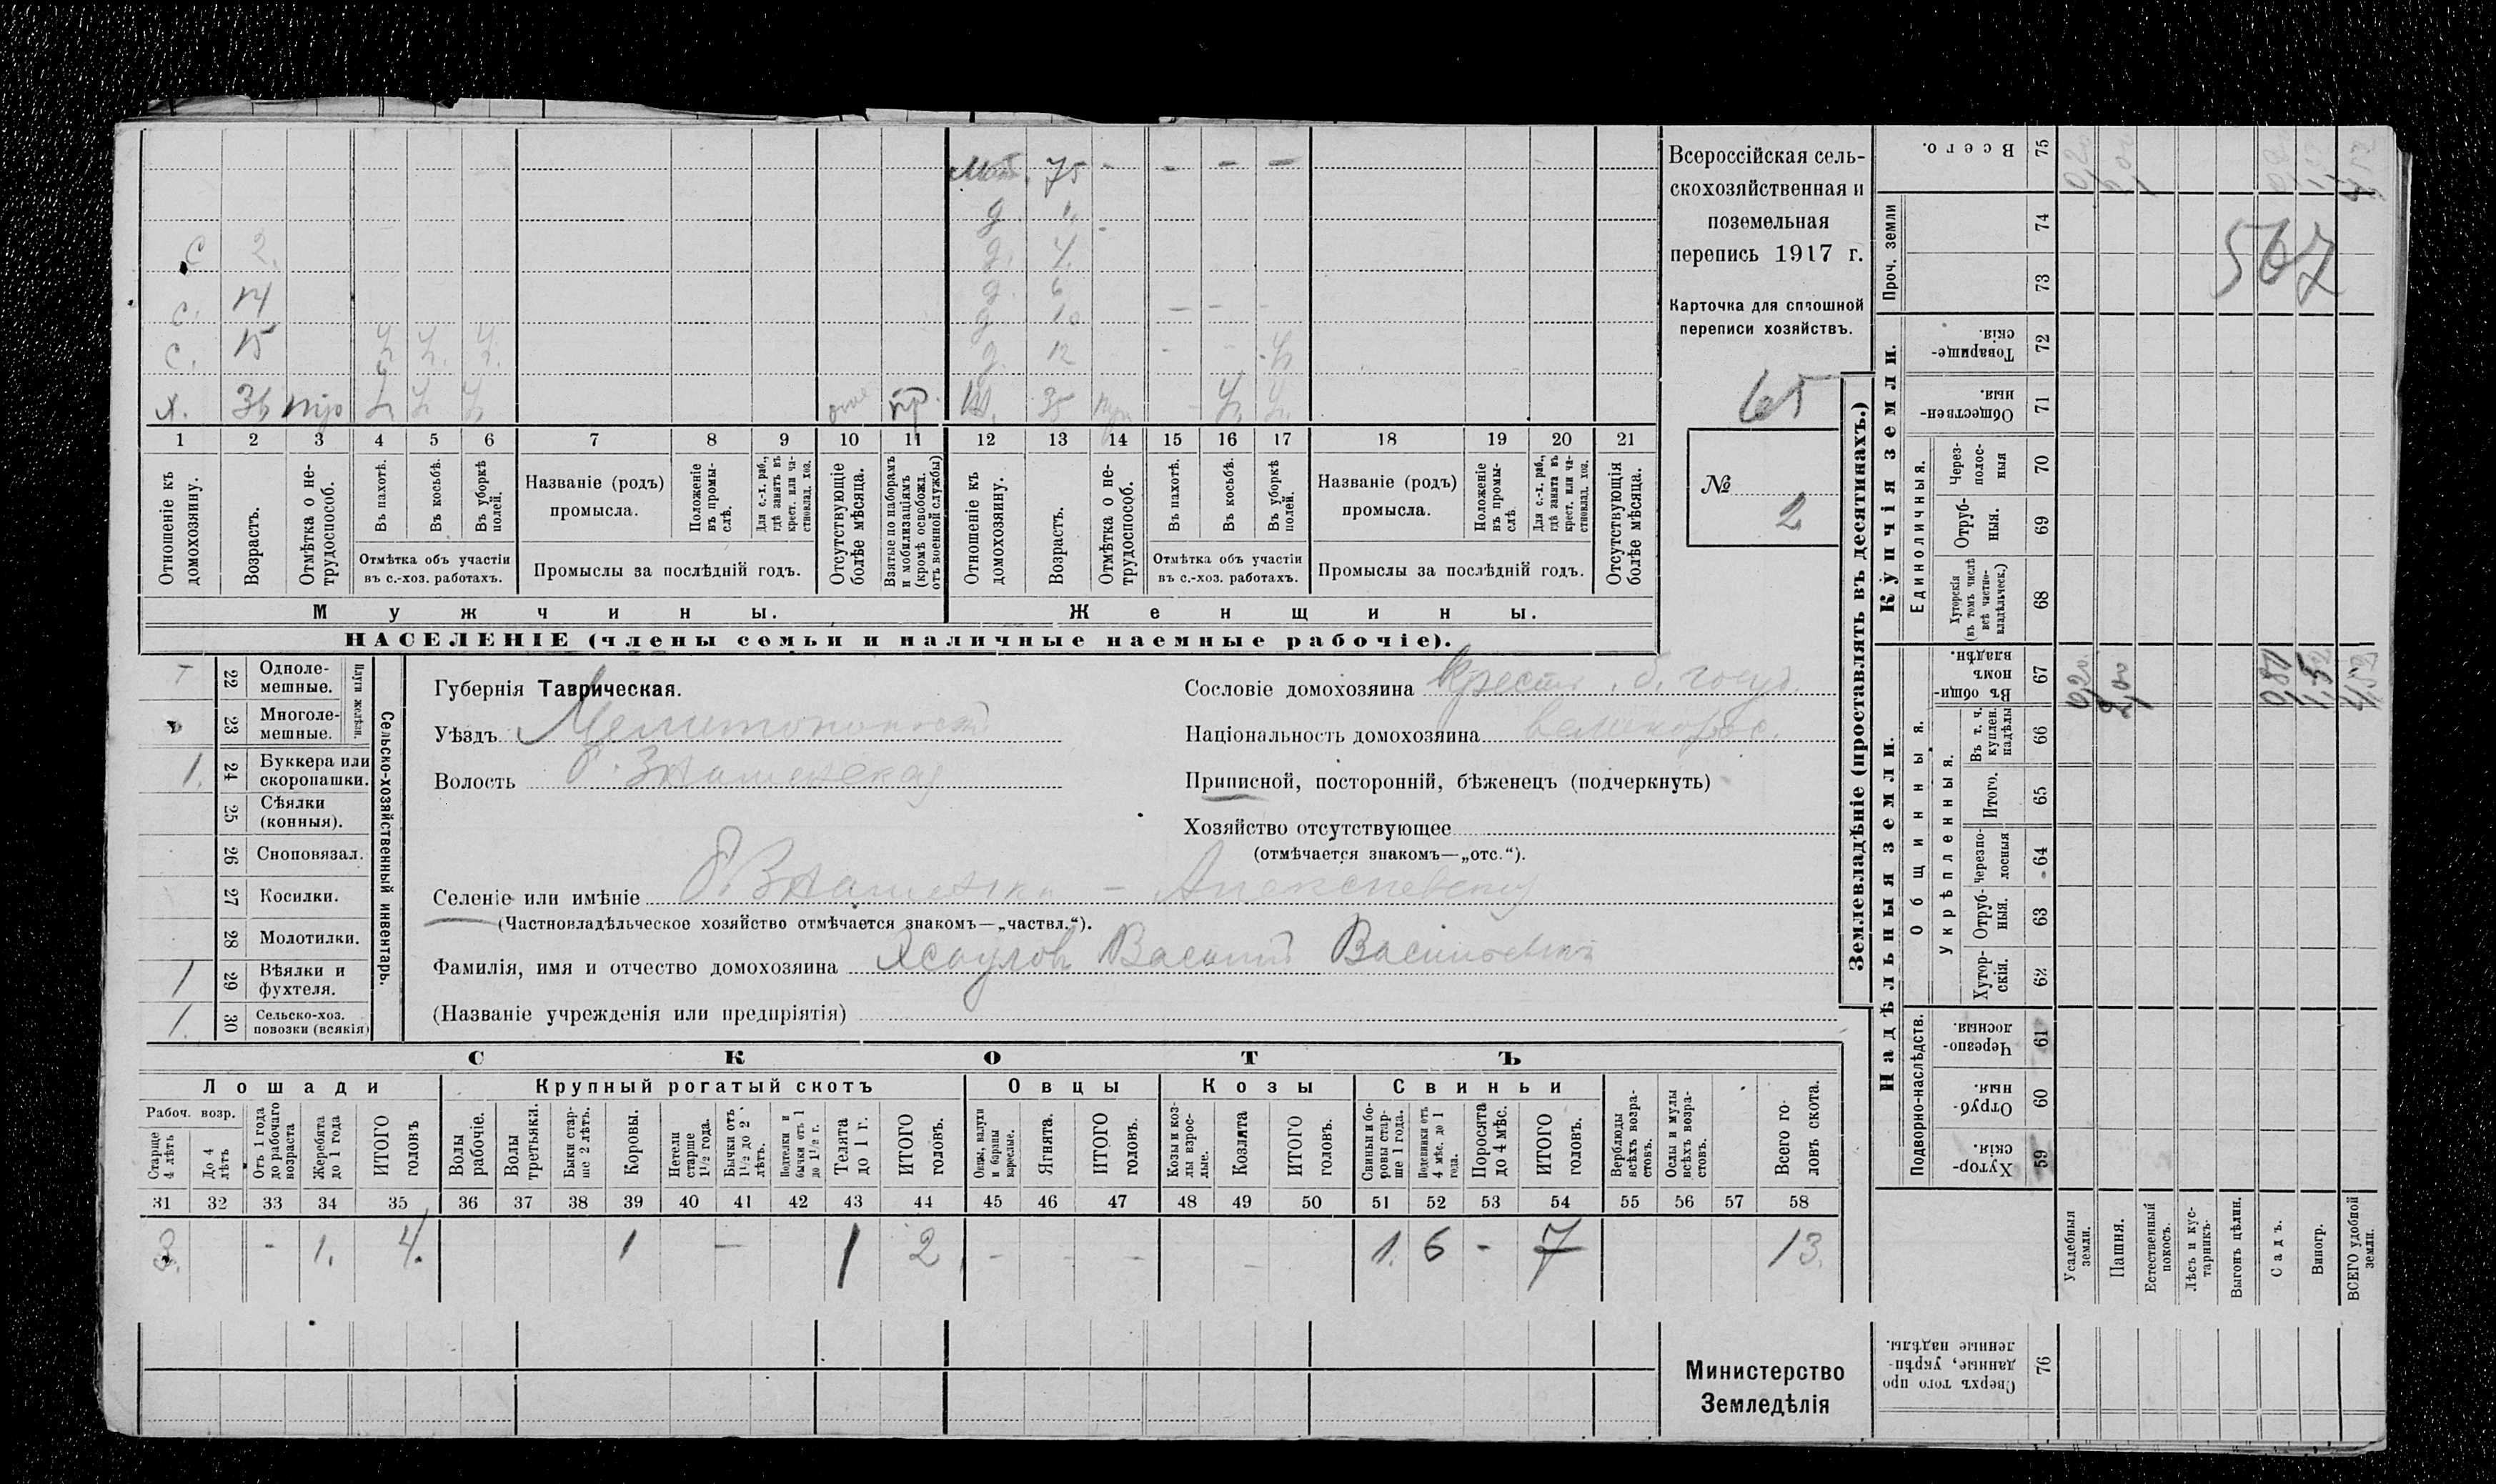 Мат. 75 - - - -
д. 1.
с 2. д. 4.
с. 14 д. 6
д. 10 - - -
с. 15 ч ч. ч. д. 12 - - ч
х. 36 ч ч ч пр. ж. 38 - ч. ч.
1 2 3 4 5 6 7 8 9 10 11 12 13 14 15 16 17 18 19 20 21
Отношеніе къ домохозяину.
Возрастъ.
Отмѣтка о не-трудоспособ.
Въ пахотѣ.
Въ косьбѣ.
Въ уборкѣ полей.
Отмѣтка объ участіи
въ с.-хоз. работахъ.
Названіе (родъ)
промысла.
Положеніе въ промы-слѣ.
Для с.-х. раб., гдѣ занятъ въ крест. или ча-стновлад. хоз.
Промыслы за послѣдній годъ.
Отсутствующіе болѣе мѣсяца.
Взятые по наборамъ и мобилизаціямъ (кромѣ освобожд. отъ военной службы)
Отношеніе къ домохозяину.
Возрастъ.
Отмѣтка о не-трудоспособ.
Въ пахотѣ.
Въ косьбѣ.
Въ уборкѣ полей.
Отмѣтка объ участіи
въ с.-хоз. работахъ.
Названіе (родъ)
промысла.
Положеніе въ промы-слѣ.
Для с.-х. раб., гдѣ занята въ крест. или ча-стновлад. хоз.
Промыслы за послѣдній годъ.
Отсутствующія болѣе мѣсяца.
Мужчины. Женщины.
НАСЕЛЕНІЕ (члены семьи и наличные наемные рабочіе).
Всероссійская сель-
скохозяйственная и
поземельная
перепись 1917 г.
Карточка для сплошной
переписи хозяйствъ.
65
№
2
22 Одноле-мешные.
23 Многоле-мешные.
Плуги желѣзн.
1. 24 Буккера или скоропашки.
25 Сѣялки (конныя).
26 Сноповязал.
27 Косилки.
28 Молотилки.
1 29 Вѣялки и фухтеля.
1. 30 Сельско-хоз. повозки (всякія)
Сельско-хозяйственный инвентарь.
Губернія Таврическая.
Уѣздъ Мелитопольскій
Волость Б. Знаменская
Сословіе домохозяина Крестьян. б. госуд.
Національность домохозяина великоросс.
Приписной, посторонній, бѣженецъ (подчеркнуть)
Хозяйство отсутствующее
(отмѣчается знакомъ—„отс.“).
Селеніе или имѣніе Б. Знаменка - Алексѣевскому
(Частновладѣльческое хозяйство отмѣчается знакомъ—„частвл.“).
Фамилія, имя и отчество домохозяина Ясаулов Василий Васильевич
(Названіе учрежденія или предпріятія)
СКОТЪ
Лошади Крупный рогатый скотъ Овцы Козы Свиньи
Рабоч. возр.
Старше 4 лѣтъ
До 4 лѣтъ
Отъ 1 года до рабочаго возраста
Жеребята до 1 года
ИТОГО головъ
Волы рабочіе.
Волы третьяки.
Быки стар-ше 2 лѣтъ.
Коровы.
Нетели старше 1½ года.
Бычки отъ 1½ до 2 лѣтъ.
Подтелки и бычки отъ 1 до 1½ г.
Телята до 1 г.
ИТОГО головъ.
Овцы, валухи и бараны взрослые.
Ягнята.
ИТОГО головъ.
Козы и коз-лы взрос-лые.
Козлята
ИТОГО головъ.
Свиньи и бо-ровы стар-ше 1 года.
Подсвинки отъ 4 мѣс. до 1 года.
Поросята до 4 мѣс.
ИТОГО головъ.
Верблюды всѣхъ возра-стовъ.
Ослы и мулы всѣхъ возра-стовъ.
Всего го-ловъ скота.
31 32 33 34 35 36 37 38 39 40 41 42 43 44 45 46 47 48 49 50 51 52 53 54 55 56 57 58
3. - 1. 4. 1 - 1 2 - - - - 1. 6 - 7 13.
Министерство
Земледѣлія
Землевладѣніе (проставлять въ десятинахъ.)
Купчія земли.
Всего. 75
Проч. земли 74 73
567
Товарище-скія. 72
Обществен-ныя. 71
Единоличныя.
Черезполос-ныя 70
Отруб-ныя. 69
Хуторскія (въ томъ числѣ всѣ частно-владѣльческ.) 68
Надѣльныя земли.
Общинныя.
Въ общин-номъ владѣн. 67 0,20 2,00 0,81 1,52 4,53
Укрѣпленныя.
Въ т. ч. куплен. надѣлы 66
Итого. 65
Черезпо-лосныя 64
Отруб-ныя. 63
Хутор-скія. 62
Подворно-наслѣдств.
Черезпо-лосныя. 61
Отруб-ныя. 60
Хутор-скія. 59
Усадебныя земли.
Пашня.
Естественный покосъ.
Лѣсъ и кус-тарникъ.
Выгонъ цѣлин.
Садъ.
Виногр.
ВСЕГО удобной земли.
Сверхъ того про-данные, укрѣп-ленные надѣлы. 76